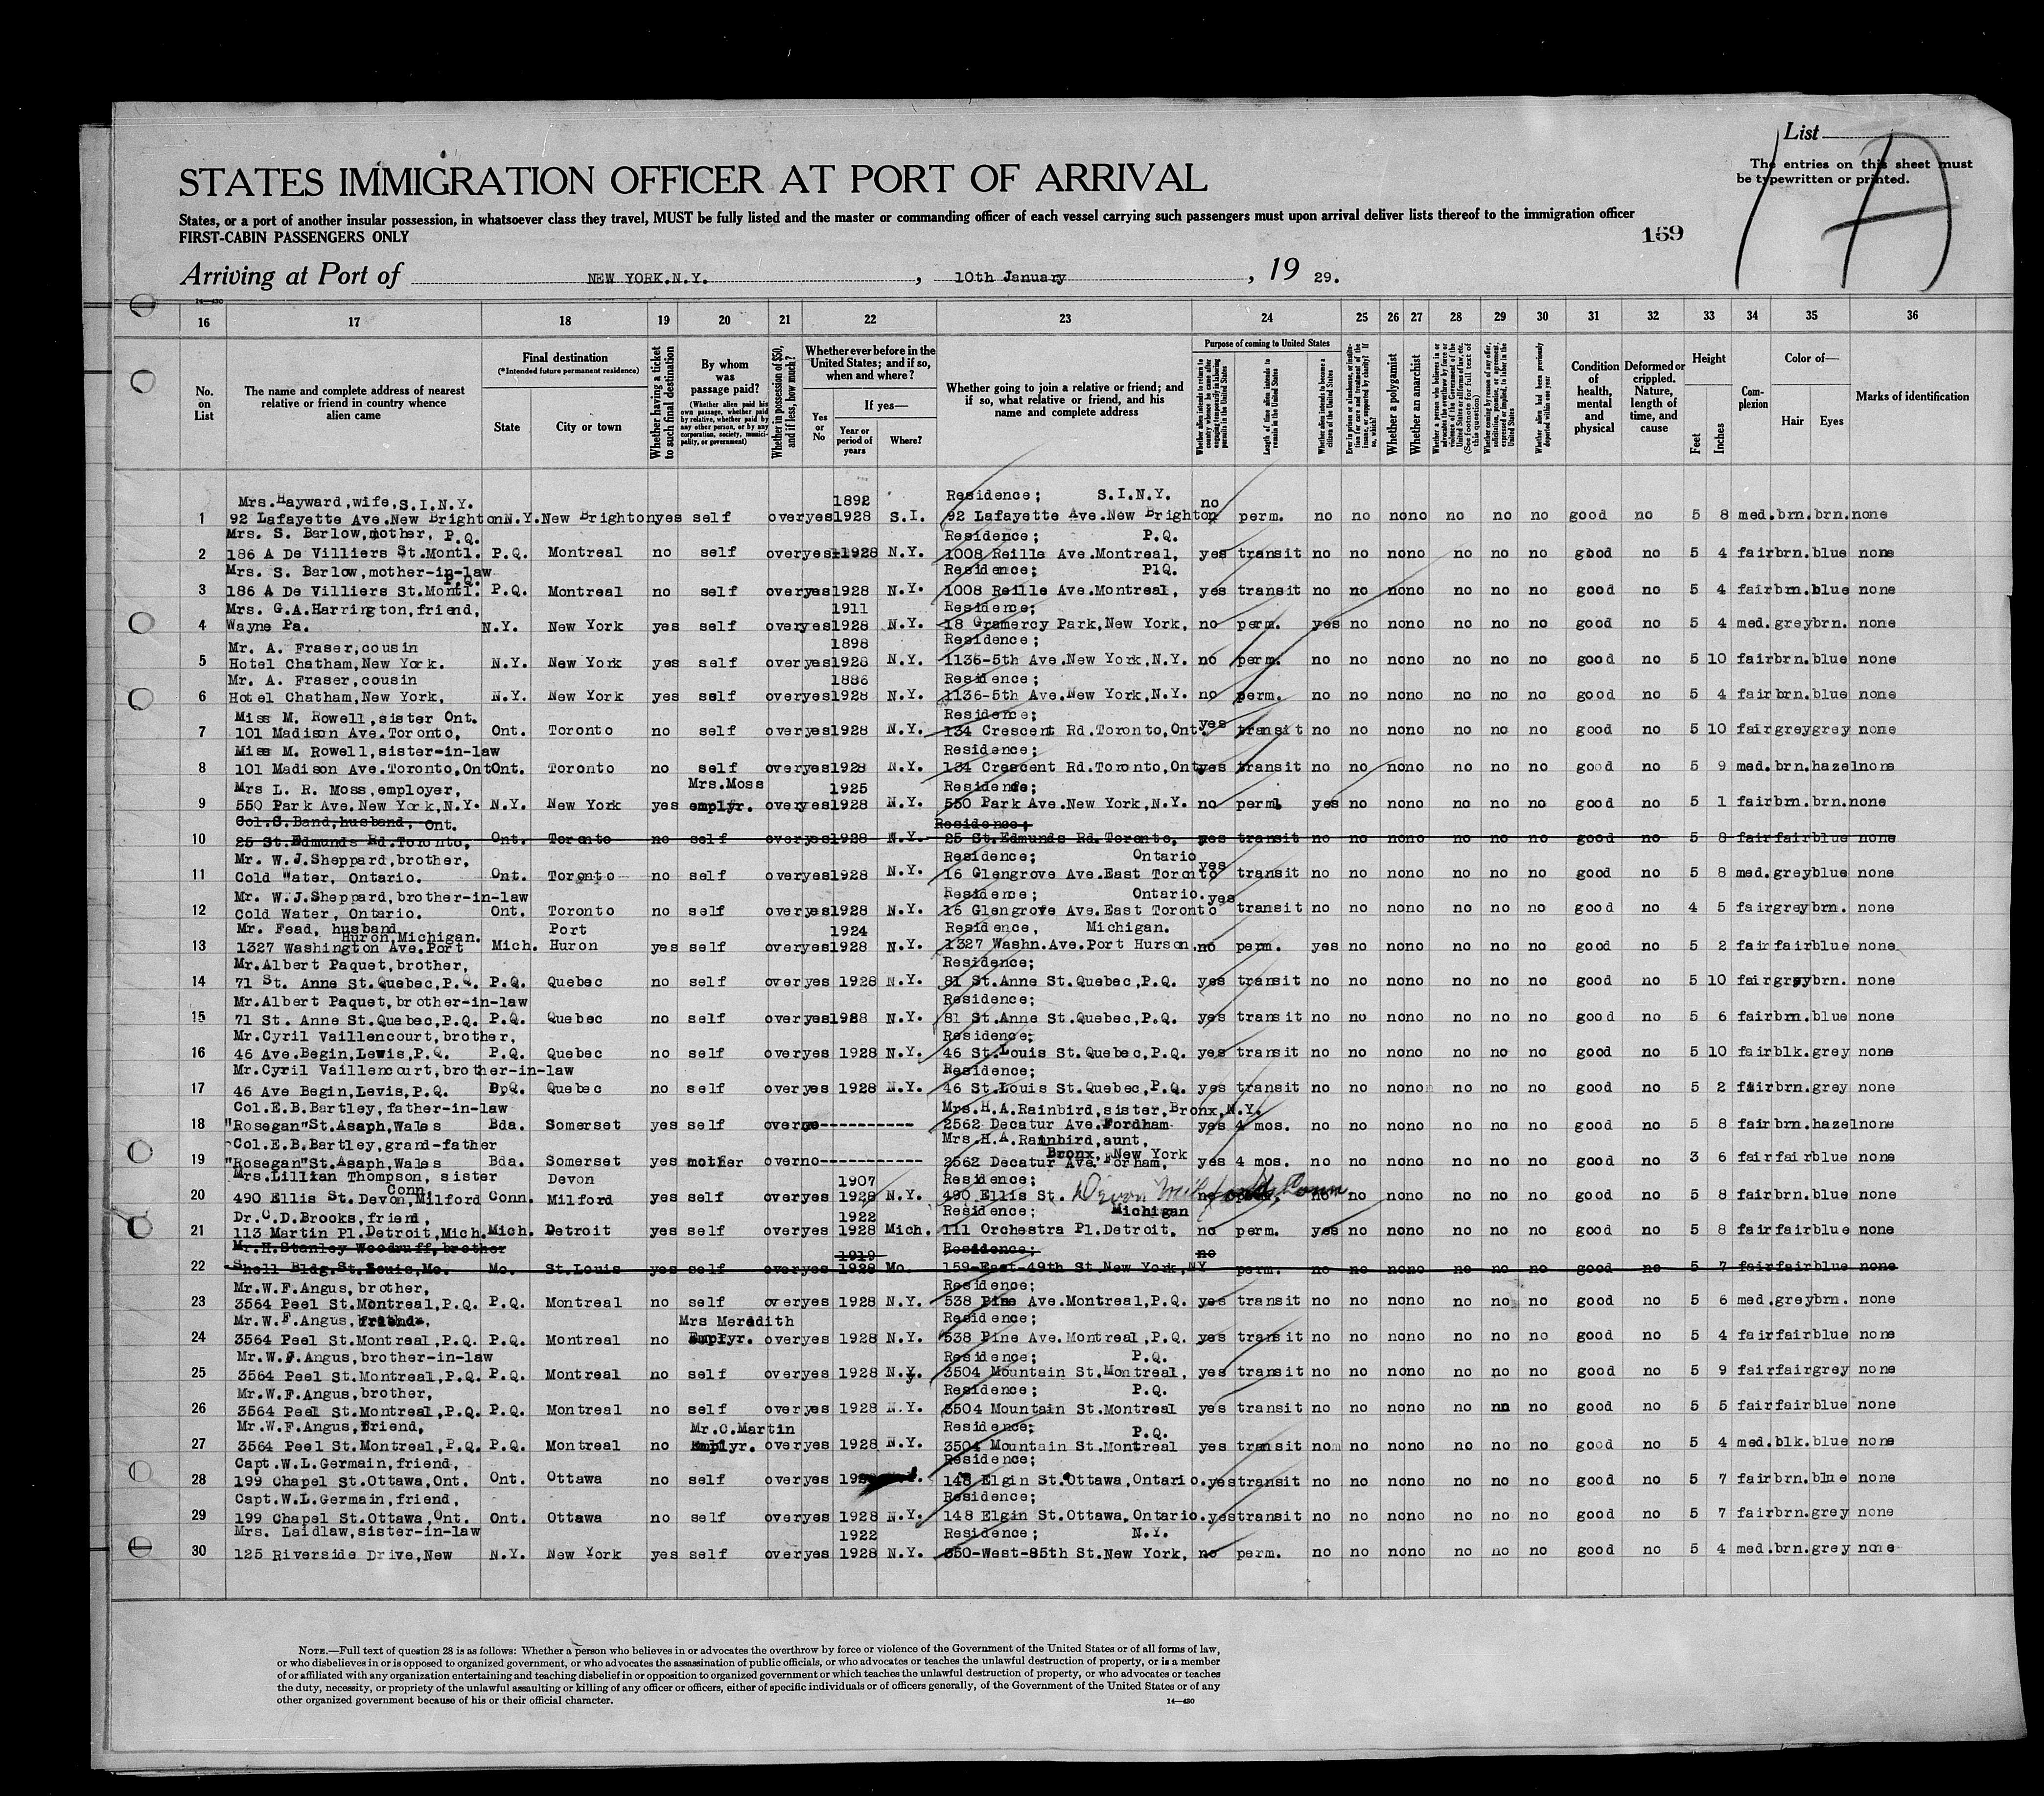 List
The entries on this sheet must
be typewritten or printed.
1A
STATES IMMIGRATION OFFICER AT PORT OF ARRIVAL
States, or a port of another insular possession, in whatsoever class they travel, MUST be fully listed and the master or commanding officer of each vessel carrying such passengers must upon arrival deliver lists thereof to the immigration officer
FIRST-CABIN PASSENGERS ONLY
159
Arriving at Port of NEW YORK.N.Y. , 10th January , 19 29.
14—430
16 17 18 19 20 21 22 23 24 25 26 27 28 29 30 31 32 33 34 35 36
No. on List
The name and complete address of nearest relative or friend in country whence alien came
Final destination
(*Intended future permanent residence)
State
City or town
Whether having a ticket to such final destination
By whom was passage paid?
(Whether alien paid his own passage, whether paid by relative, whether paid by any other person, or by any corporation, society, municipality, or government)
Whether in possession of $50, and if less, how much?
Whether ever before in the United States; and if so, when and where?
Yes or No
If yes—
Year or period of years
Where?
Whether going to join a relative or friend; and if so, what relative or friend, and his name and complete address
Purpose of coming to United States
Length of time alien intends to remain in the United States
Whether alien intends to become a citizen of the United States
Whether a polygamist
Whether an anarchist
Condition of health, mental and physical
Deformed or crippled. Nature, length of time, and cause
Height
Feet
Inches
Complexion
Color of—
Hair
Eyes
Marks of identification
Mrs.Hayward,wife,S.I.N.Y. 1892 Residence; S.I.N.Y. no
1 92 Lafayette Ave.New Brighton N.Y. New Brighton yes self over yes 1928 S.I. 92 Lafayette Ave.New Brighton perm. no no no no no no no good no 5 8 med. brn. brn. none
Mrs. S. Barlow,mother, P.Q. Residence; P.Q.
2 186 A De Villiers St.Montl. P.Q. Montreal no self over yes 1928 N.Y. 1008 Reille Ave.Montreal, yes transit no no no no no no no good no 5 4 fair brn. blue none
Mrs. S. Barlow,mother-in-law P.Q. Residence; PlQ.
3 186 A De Villiers St.Montl. P.Q. Montreal no self over yes 1928 N.Y. 1008 Reille Ave.Montreal, yes transit no no no no no no no good no 5 4 fair brn. blue none
Mrs. G.A.Harrington,friend, 1911 Residence;
4 Wayne Pa. N.Y. New York yes self over yes 1928 N.Y. 18 Gramercy Park,New York, no perm. yes no no no no no no good no 5 4 med. grey brn. none
Mr. A. Fraser,cousin 1898 Residence;
5 Hotel Chatham,New York. N.Y. New York yes self over yes 1928 N.Y. 1136-5th Ave.New York,N.Y. no perm. no no no no no no no good no 5 10 fair brn. blue none
Mr. A. Fraser,cousin 1886 Residence;
6 Hotel Chatham,New York, N.Y. New York yes self over yes 1928 N.Y. 1136-5th Ave.New York,N.Y. no perm. no no no no no no no good no 5 4 fair brn. blue none
Miss M. Rowell,sister Ont. Residence;
7 101 Madison Ave.Toronto, Ont. Toronto no self over yes 1928 N.Y. 134 Crescent Rd.Toronto,Ont. yes transit no no no no no no no good no 5 10 fair grey grey none
Miss M. Rowell,sister-in-law Residence;
8 101 Madison Ave.Toronto,Ont Ont. Toronto no self over yes 1928 N.Y. 134 Crescent Rd.Toronto,Ont. yes transit no no no no no no no good no 5 9 med. brn. hazel none
Mrs L. R. Moss,employer, Mrs.Moss 1925 Residence;
9 550 Park Ave.New York,N.Y. N.Y. New York yes emplyr. over yes 1928 N.Y. 550 Park Ave.New York,N.Y. no perm. yes no no no no no no good no 5 1 fair brn. brn. none
Col.S.Band,husband, Ont. Residence;
10 25 St.Edmunds Rd.Toronto, Ont. Toronto no self over yes 1928 N.Y. 25 St.Edmunds Rd.Toronto, yes transit no no no no no no no good no 5 8 fair fair blue none
Mr. W.J.Sheppard,brother, Residence; Ontario
11 Cold Water, Ontario. Ont. Toronto no self over yes 1928 N.Y. 16 Glengrove Ave.East Toronto yes transit no no no no no no no good no 5 8 med. grey blue none
Mr. W.J.Sheppard,brother-in-law Residence; Ontario.
12 Cold Water, Ontario. Ont. Toronto no self over yes 1928 N.Y. 16 Glengrove Ave.East Toronto yes transit no no no no no no no good no 4 5 fair grey brn. none
Mr. Fead, husband Huron,Michigan. Port 1924 Residence, Michigan.
13 1327 Washington Ave.Port Mich. Huron yes self over yes 1928 N.Y. 1327 Washn.Ave.Port Hurson, no perm. yes no no no no no no good no 5 2 fair fair blue none
Mr.Albert Paquet,brother, Residence;
14 71 St. Anne St.Quebec,P.Q. P.Q. Quebec no self over yes 1928 N.Y. 81 St.Anne St.Quebec,P.Q. yes transit no no no no no no no good no 5 10 fair grey brn. none
Mr.Albert Paquet,brother-in-law Residence;
15 71 St. Anne St.Quebec,P.Q. P.Q. Quebec no self over yes 1928 N.Y. 81 St.Anne St.Quebec,P.Q. yes transit no no no no no no no good no 5 6 fair brn. blue none
Mr.Cyril Vaillencourt,brother, Residence;
16 46 Ave.Begin,Lewis,P.Q. P.Q. Quebec no self over yes 1928 N.Y. 46 St.Louis St.Quebec,P.Q. yes transit no no no no no no no good no 5 10 fair blk. grey none
Mr.Cyril Vaillencourt,brother-in-law Residence;
17 46 Ave Begin,Levis,P.Q. P.Q. Quebec no self over yes 1928 N.Y. 46 St.Louis St.Quebec,P.Q. yes transit no no no no no no no good no 5 2 fair brn. grey none
Col.E.B.Bartley,father-in-law Mrs.H.A.Rainbird,sister,Bronx,N.Y.
18 "Rosegan"St.Asaph,Wales Bda. Somerset yes self over no----------- 2562 Decatur Ave.Fordham yes 4 mos. no no no no no no no good no 5 8 fair brn. hazel none
Col.E.B.Bartley,grand-father Mrs.H.A.Rainbird,aunt, Bronx, New York
19 "Rosegan"St.Asaph,Wales Bda. Somerset yes mother over no------------ 2562 Decatur Ave. Forham, yes 4 mos. no no no no no no no good no 3 6 fair fair blue none
Mrs.Lillian Thompson, sister Conn. Devon 1907 Residence;
20 490 Ellis St.Devon,Milford Conn. Milford yes self over yes 1928 N.Y. 490 Ellis St. Devon Milford Conn no no no no no no no good no 5 8 fair brn. blue none
Dr.C.D.Brooks,friend, 1922 Residence; Michigan
21 113 Martin Pl.Detroit,Mich. Mich. Detroit yes self over yes 1928 Mich. 111 Orchestra Pl.Detroit, no perm. yes no no no no no no good no 5 8 fair fair blue none
Mr.H.Stanley Woodruff,brother 1919 Residence; no
22 Shell Bldg.St.Louis,Mo. Mo. St.Louis yes self over yes 1928 Mo. 159-East-49th St.New York,NY perm. no no no no no no no good no 5 7 fair fair blue none
Mr.W.F.Angus,brother, Residence;
23 3564 Peel St.Montreal,P.Q. P.Q. Montreal no self over yes 1928 N.Y. 538 Pine Ave.Montreal,P.Q. yes transit no no no no no no no good no 5 6 med. grey brn. none
Mr.W.F.Angus,friend, Mrs Meredith Residence;
24 3564 Peel St.Montreal,P.Q. P.Q. Montreal no Emplyr. over yes 1928 N.Y. 538 Pine Ave.Montreal,P.Q. yes transit no no no no no no no good no 5 4 fair fair blue none
Mr.W.F.Angus,brother-in-law Residence; P.Q.
25 3564 Peel St.Montreal,P.Q. P.Q. Montreal no self over yes 1928 N.Y. 3504 Mountain St.Montreal, yes transit no no no no no no no good no 5 9 fair fair grey none
Mr.W.F.Angus,brother, Residence; P.Q.
26 3564 Peel St.Montreal,P.Q. P.Q. Montreal no self over yes 1928 N.Y. 3504 Mountain St.Montreal yes transit no no no no no nn no good no 5 5 fair fair blue none
Mr.W.F.Angus,friend, Mr.C.Martin Residence; P.Q.
27 3564 Peel St.Montreal,P.Q. P.Q. Montreal no Emplyr. over yes 1928 N.Y. 3504 Mountain St.Montreal yes transit no no no no no no no good no 5 4 med. blk. blue none
Capt.W.L.Germain,friend, Residence;
28 199 Chapel St.Ottawa,Ont. Ont. Ottawa no self over yes 148 Elgin St.Ottawa,Ontario. yes transit no no no no no no no good no 5 7 fair brn. blue none
Capt.W.L.Germain,friend, Residence;
29 199 Chapel St.Ottawa,Ont. Ont. Ottawa no self over yes 1928 N.Y. 148 Elgin St.Ottawa,Ontario. yes transit no no no no no no no good no 5 7 fair brn. grey none
Mrs. Laidlaw,sister-in-law 1922 Residence; N.Y.
30 125 Riverside Drive,New N.Y. New York yes self over yes 1928 N.Y. 350-West-85th St.New York, no perm. no no no no no no no good no 5 4 med. brn. grey none
NOTE.—Full text of question 28 is as follows: Whether a person who believes in or advocates the overthrow by force or violence of the Government of the United States or of all forms of law,
or who disbelieves in or is opposed to organized government, or who advocates the assassination of public officials, or who advocates or teaches the unlawful destruction of property, or is a member
of or affiliated with any organization entertaining and teaching disbelief in or opposition to organized government or which teaches the unlawful destruction of property, or who advocates or teaches
the duty, necessity, or propriety of the unlawful assaulting or killing of any officer or officers, either of specific individuals or of officers generally, of the Government of the United States or of any
other organized government because of his or their official character.
14—430